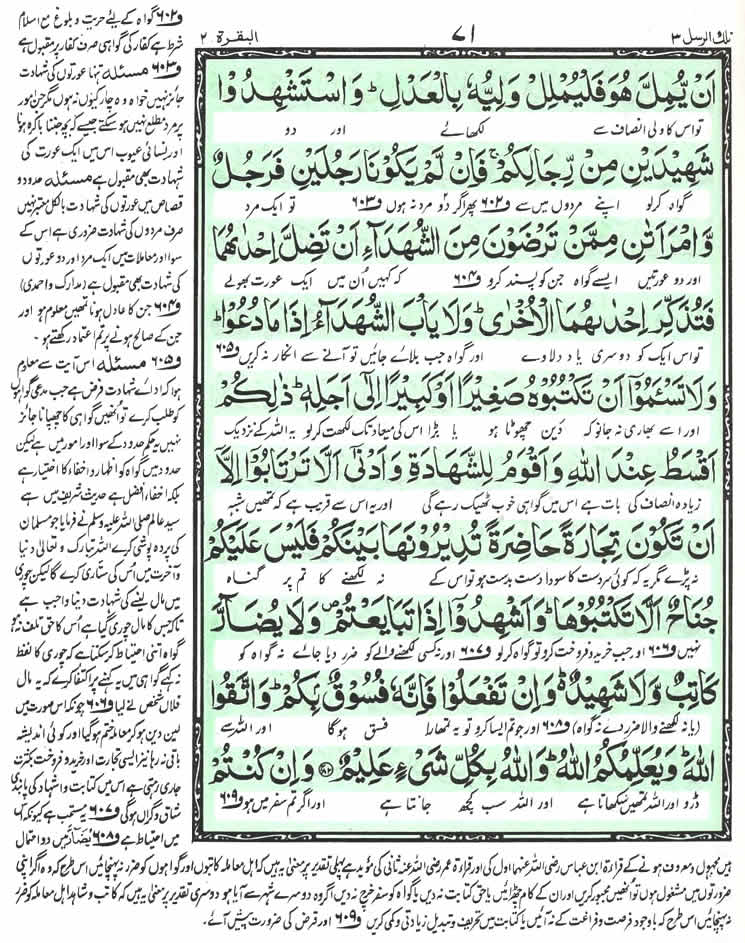 تلك الرسل ٣
٧١
البقرة ٢
اَنْ يُّمِلَّ هُوَ فَلْيُمْلِلْ وَلِيُّهٗ بِالْعَدْلِ ؕ وَاسْتَشْهِدُوْا
تو اس کا ولی انصاف سے لکھائے اور دو
شَهِيْدَيْنِ مِنْ رِّجَالِكُمْ ۚ فَاِنْ لَّمْ يَكُوْنَا رَجُلَيْنِ فَرَجُلٌ
گواہ کرلو اپنے مردوں میں سے و۶۰۲ پھر اگر دو مرد نہ ہوں و۶۰۳ تو ایک مرد
وَّامْرَاَتٰنِ مِمَّنْ تَرْضَوْنَ مِنَ الشُّهَدَآءِ اَنْ تَضِلَّ اِحْدٰىهُمَا
اور دو عورتیں ایسے گواہ جن کو پسند کرو و۶۰۴ کہ کہیں اُن میں ایک عورت بھولے
فَتُذَكِّرَ اِحْدٰىهُمَا الْاُخْرٰى ؕ وَلَا يَاْبَ الشُّهَدَآءُ اِذَا مَا دُعُوْا ؕ
تو اس ایک کو دوسری یاد دلاوے اور گواہ جب بلائے جائیں تو آنے سے انکار نہ کریں و۶۰۵
وَلَا تَسْـَٔمُوْۤا اَنْ تَكْتُبُوْهُ صَغِيْرًا اَوْ كَبِيْرًا اِلٰۤى اَجَلِهٖ ؕ ذٰلِكُمْ
اور اسے بھاری نہ جانو کہ دَین چھوٹا ہو یا بڑا اس کی میعاد تک لکھت کرلو یہ اللہ کے نزدیک
اَقْسَطُ عِنْدَ اللّٰهِ وَاَقْوَمُ لِلشَّهَادَةِ وَاَدْنٰۤى اَلَّا تَرْتَابُوْۤا اِلَّاۤ
زیادہ انصاف کی بات ہے اس میں گواہی خوب ٹھیک رہے گی اور یہ اس سے قریب ہے کہ تمھیں شبہہ
اَنْ تَكُوْنَ تِجَارَةً حَاضِرَةً تُدِيْرُوْنَهَا بَيْنَكُمْ فَلَيْسَ عَلَيْكُمْ
نہ پڑے مگر یہ کہ کوئی سردست کا سودا دست بدست ہو تو اس کے نہ لکھنے کا تم پر گناہ
جُنَاحٌ اَلَّا تَكْتُبُوْهَا ؕ وَاَشْهِدُوْۤا اِذَا تَبَايَعْتُمْ ۪ وَلَا يُضَآرَّ
نہیں و۶۰۶ اور جب خرید و فروخت کرو تو گواہ کرلو و۶۰۷ اور نہ کسی لکھنے والے کو ضرر دیا جائے نہ گواہ کو
كَاتِبٌ وَّلَا شَهِيْدٌ ؕ وَاِنْ تَفْعَلُوْا فَاِنَّهٗ فُسُوْقٌۢ بِكُمْ ؕ وَاتَّقُوا
(یا نہ لکھنے والا ضرر دے نہ گواہ) و۶۰۸ اور جو تم ایسا کرو تو یہ تمھارا فسق ہوگا اور اللہ سے
اللّٰهَ ؕ وَيُعَلِّمُكُمُ اللّٰهُ ؕ وَاللّٰهُ بِكُلِّ شَىْءٍ عَلِيْمٌ ﴿۲۸۲﴾ وَاِنْ كُنْتُمْ
ڈرو اور اللہ تمھیں سکھاتا ہے اور اللہ سب کچھ جانتا ہے اور اگر تم سفر میں ہو و۶۰۹
و۶۰۲ گواہ کے لیے حریت و بلوغ مع اسلام
شرط ہے کفار کی گواہی صرف کفار پر مقبول ہے
و۶۰۳ مسئلہ تنہا عورتوں کی شہادت
جائز نہیں خواہ وہ چار کیوں نہ ہوں مگر جن امور
پر مرد مطلع نہیں ہوسکتے جیسے کہ بچہ جننا باکرہ ہونا
اور نسائی عیوب اس میں ایک عورت کی
شہادت بھی مقبول ہے مسئلہ حدود و
قصاص میں عورتوں کی شہادت بالکل معتبر نہیں
صرف مردوں کی شہادت ضروری ہے اس کے
سوا اور معاملات میں ایک مرد اور دو عورتوں
کی شہادت بھی مقبول ہے (مدارک و احمدی)
و۶۰۴ جن کا عادل ہونا تمھیں معلوم ہو اور
جن کے صالح ہونے پر تم اعتماد رکھتے ہو۔
و۶۰۵ مسئلہ اس آیت سے معلوم
ہوا کہ ادائے شہادت فرض ہے جب مدعی گواہوں
کو طلب کرے تو انھیں گواہی کا چھپانا جائز
نہیں یہ حکم حدود کے سوا اور امور میں ہے لیکن
حدود میں گواہ کو اظہار و اخفاء کا اختیار ہے
بلکہ اخفاء افضل ہے حدیث شریف میں ہے
سید عالم صلی اللہ علیہ وسلم نے فرمایا جو مسلمان
کی پردہ پوشی کرے اللہ تبارک و تعالیٰ دنیا
و آخرت میں اُس کی ستاری کرے گا لیکن چوری
میں مال لینے کی شہادت دینا واجب ہے
تاکہ جس کا مال چوری گیا ہے اُس کا حق تلف نہ ہو
گواہ اتنی احتیاط کرسکتا ہے کہ چوری کا لفظ
نہ کہے گواہی میں یہ کہنے پر اکتفا کرے کہ یہ مال
فلاں شخص نے لیا و۶۰۶ چونکہ اس صورت میں
لین دین ہو کر معاملہ ختم ہوگیا اور کوئی اندیشہ
باقی نہ رہا نیز ایسی تجارت اور خرید و فروخت بکثرت
جاری رہتی ہے اس میں کتابت و اشہاد کی پابندی
شاق و گراں ہوگی و۶۰۷ یہ مستحب ہے کیونکہ
میں احتیاط ہے و۶۰۸ یضآر میں دو احتمال
ہیں مجہول و معروف ہونے کے قراءۃ ابن عباس رضی اللہ عنہما اول کی اور قراءۃ عمر رضی اللہ عنہ ثانی کی مؤید ہے پہلی تقدیر پر معنی یہ ہیں کہ اہل معاملہ کاتبوں اور گواہوں کو ضرر نہ پہنچائیں اس طرح کہ وہ اگر اپنی
ضرورتوں میں مشغول ہوں تو انھیں مجبور کریں اور ان کے کام چھڑائیں یا حق کتابت نہ دیں یا گواہ کو سفر خرچ نہ دیں اگر وہ دوسرے شہر سے آیا ہو دوسری تقدیر پر معنی یہ ہیں کہ کاتب و شاہد اہل معاملہ کو ضرر
نہ پہنچائیں اس طرح کہ باوجود فرصت و فراغت کے نہ آئیں یا کتابت میں تحریف و تبدیل زیادتی و کمی کریں و۶۰۹ اور قرض کی ضرورت پیش آئے۔